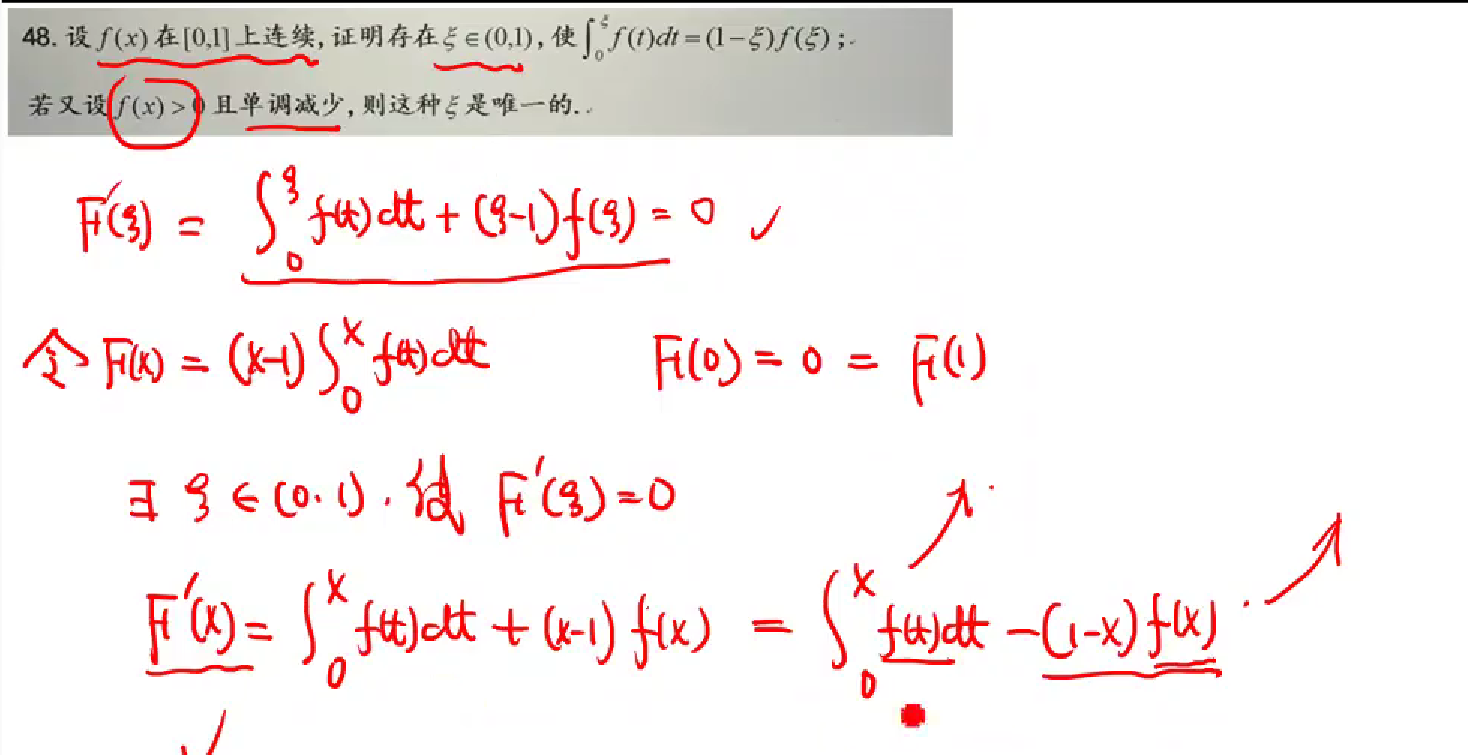 48. 设 f(x) 在[0,1]上连续, 证明存在 ξ∈(0,1), 使∫₀^ξ f(t)dt=(1−ξ)f(ξ);.
若又设 f(x)>0 且单调减少, 则这种 ξ 是唯一的..
F'(ξ) = ∫₀^ξ f(t)dt + (ξ-1)f(ξ) = 0 ✓
令 F(x) = (x-1)∫₀^x f(t)dt F(0) = 0 = F(1)
∃ ξ ∈ (0,1). 使 F'(ξ) = 0
F'(x) = ∫₀^x f(t)dt + (x-1) f(x) = ∫₀^x f(t)dt - (1-x) f(x)